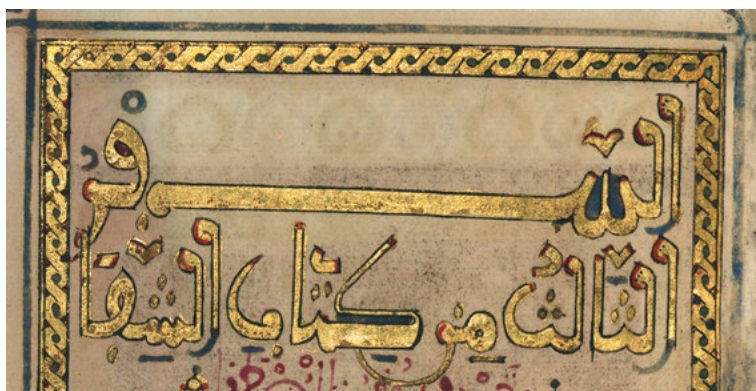 السِّفْرُ
الثَّالِثُ مِن كِتَابِ الشِّفَا